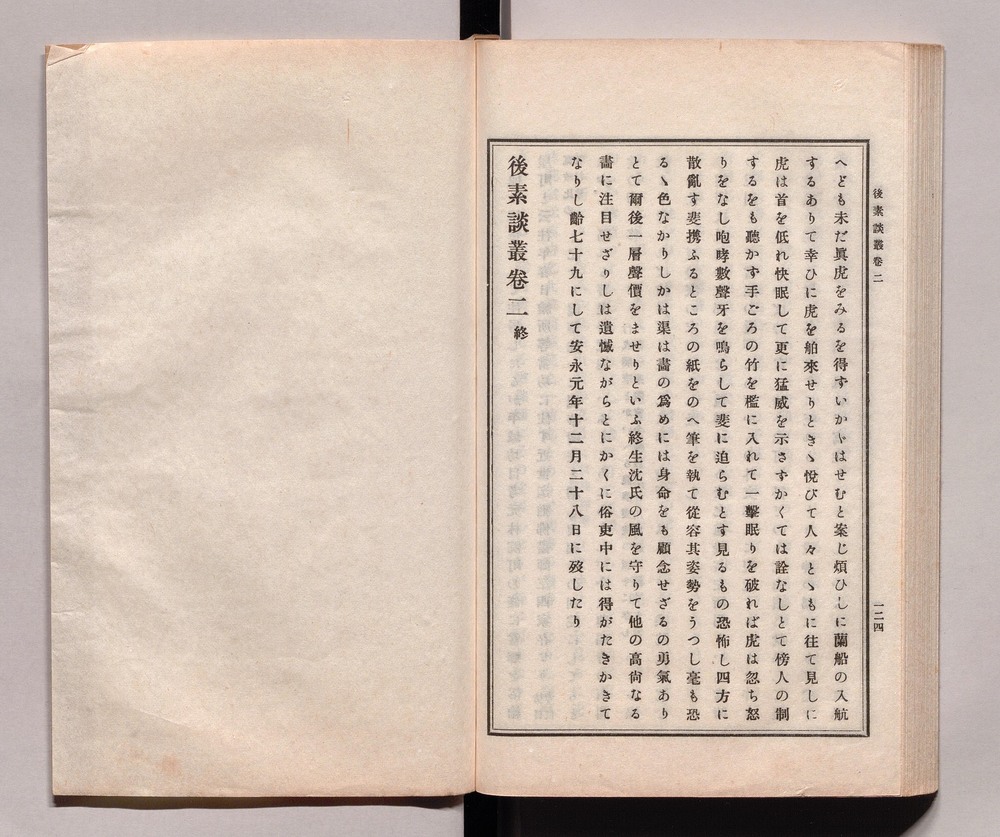 後素談叢卷二
一二四
へども未だ眞虎をみるを得ずいかヾはせむと案じ煩ひしに蘭船の入航
するありて幸ひに虎を舶來せりときゝ悅びて人々とゝもに往て見しに
虎は首を低れ快眠して更に猛威を示さずかくては詮なしとて傍人の制
するをも聽かず手ごろの竹を檻に入れて一擊眠りを破れば虎は忽ち怒
りをなし咆哮數聲牙を鳴らして斐に迫らむとす見るもの恐怖し四方に
散亂す斐携ふるところの紙をのへ筆を執て從容其姿勢をうつし毫も恐
るゝ色なかりしかは渠は畵の爲めには身命をも顧念せざるの勇氣あり
とて爾後一層聲價をませりといふ終生沈氏の風を守りて他の高尙なる
畵に注目せざりしは遺憾ながらとにかくに俗吏中には得がたきかきて
なりし齡七十九にして安永元年十二月二十八日に歿したり
後素談叢卷二終